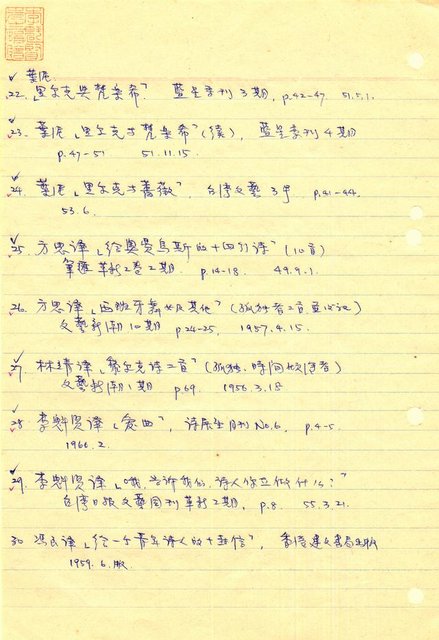 葉泥
22. 「里尔克與梵樂希」 藍星季刊 3期, p.42-47 51.5.1.
23. 葉泥「里尔克与梵樂希」(續), 藍星季刊 4期
p.47-51 51.11.15.
24. 葉泥「里尔克与薔薇」, 台湾文藝 3号 p.41-44.
53.6.
25. 方思譯「給奧費烏斯的十四行詩」(10首)
筆匯 革新2卷2期. p.14-18. 49.9.1.
26. 方思譯「西班牙舞女及其他」(孤独者二首
文藝新潮 10期 p.24-25, 1957.4.15.
27. 林靖譯「黎尔克詩二首」(孤独、時間
文藝新潮 1期 p.69. 1956.3.18
28. 李魁贤譯「戀曲」, 詩展望月刊 No.6, p.4-5.
1966.2.
29. 李魁贤譯「哦, 告訴我们, 詩人你在做什么?」
台湾日报文藝周刊革新2期, p.8. 55.3.21.
30. 冯至譯「给一个青年诗人的十封信」, 香港建文書局出版
1959.6.版